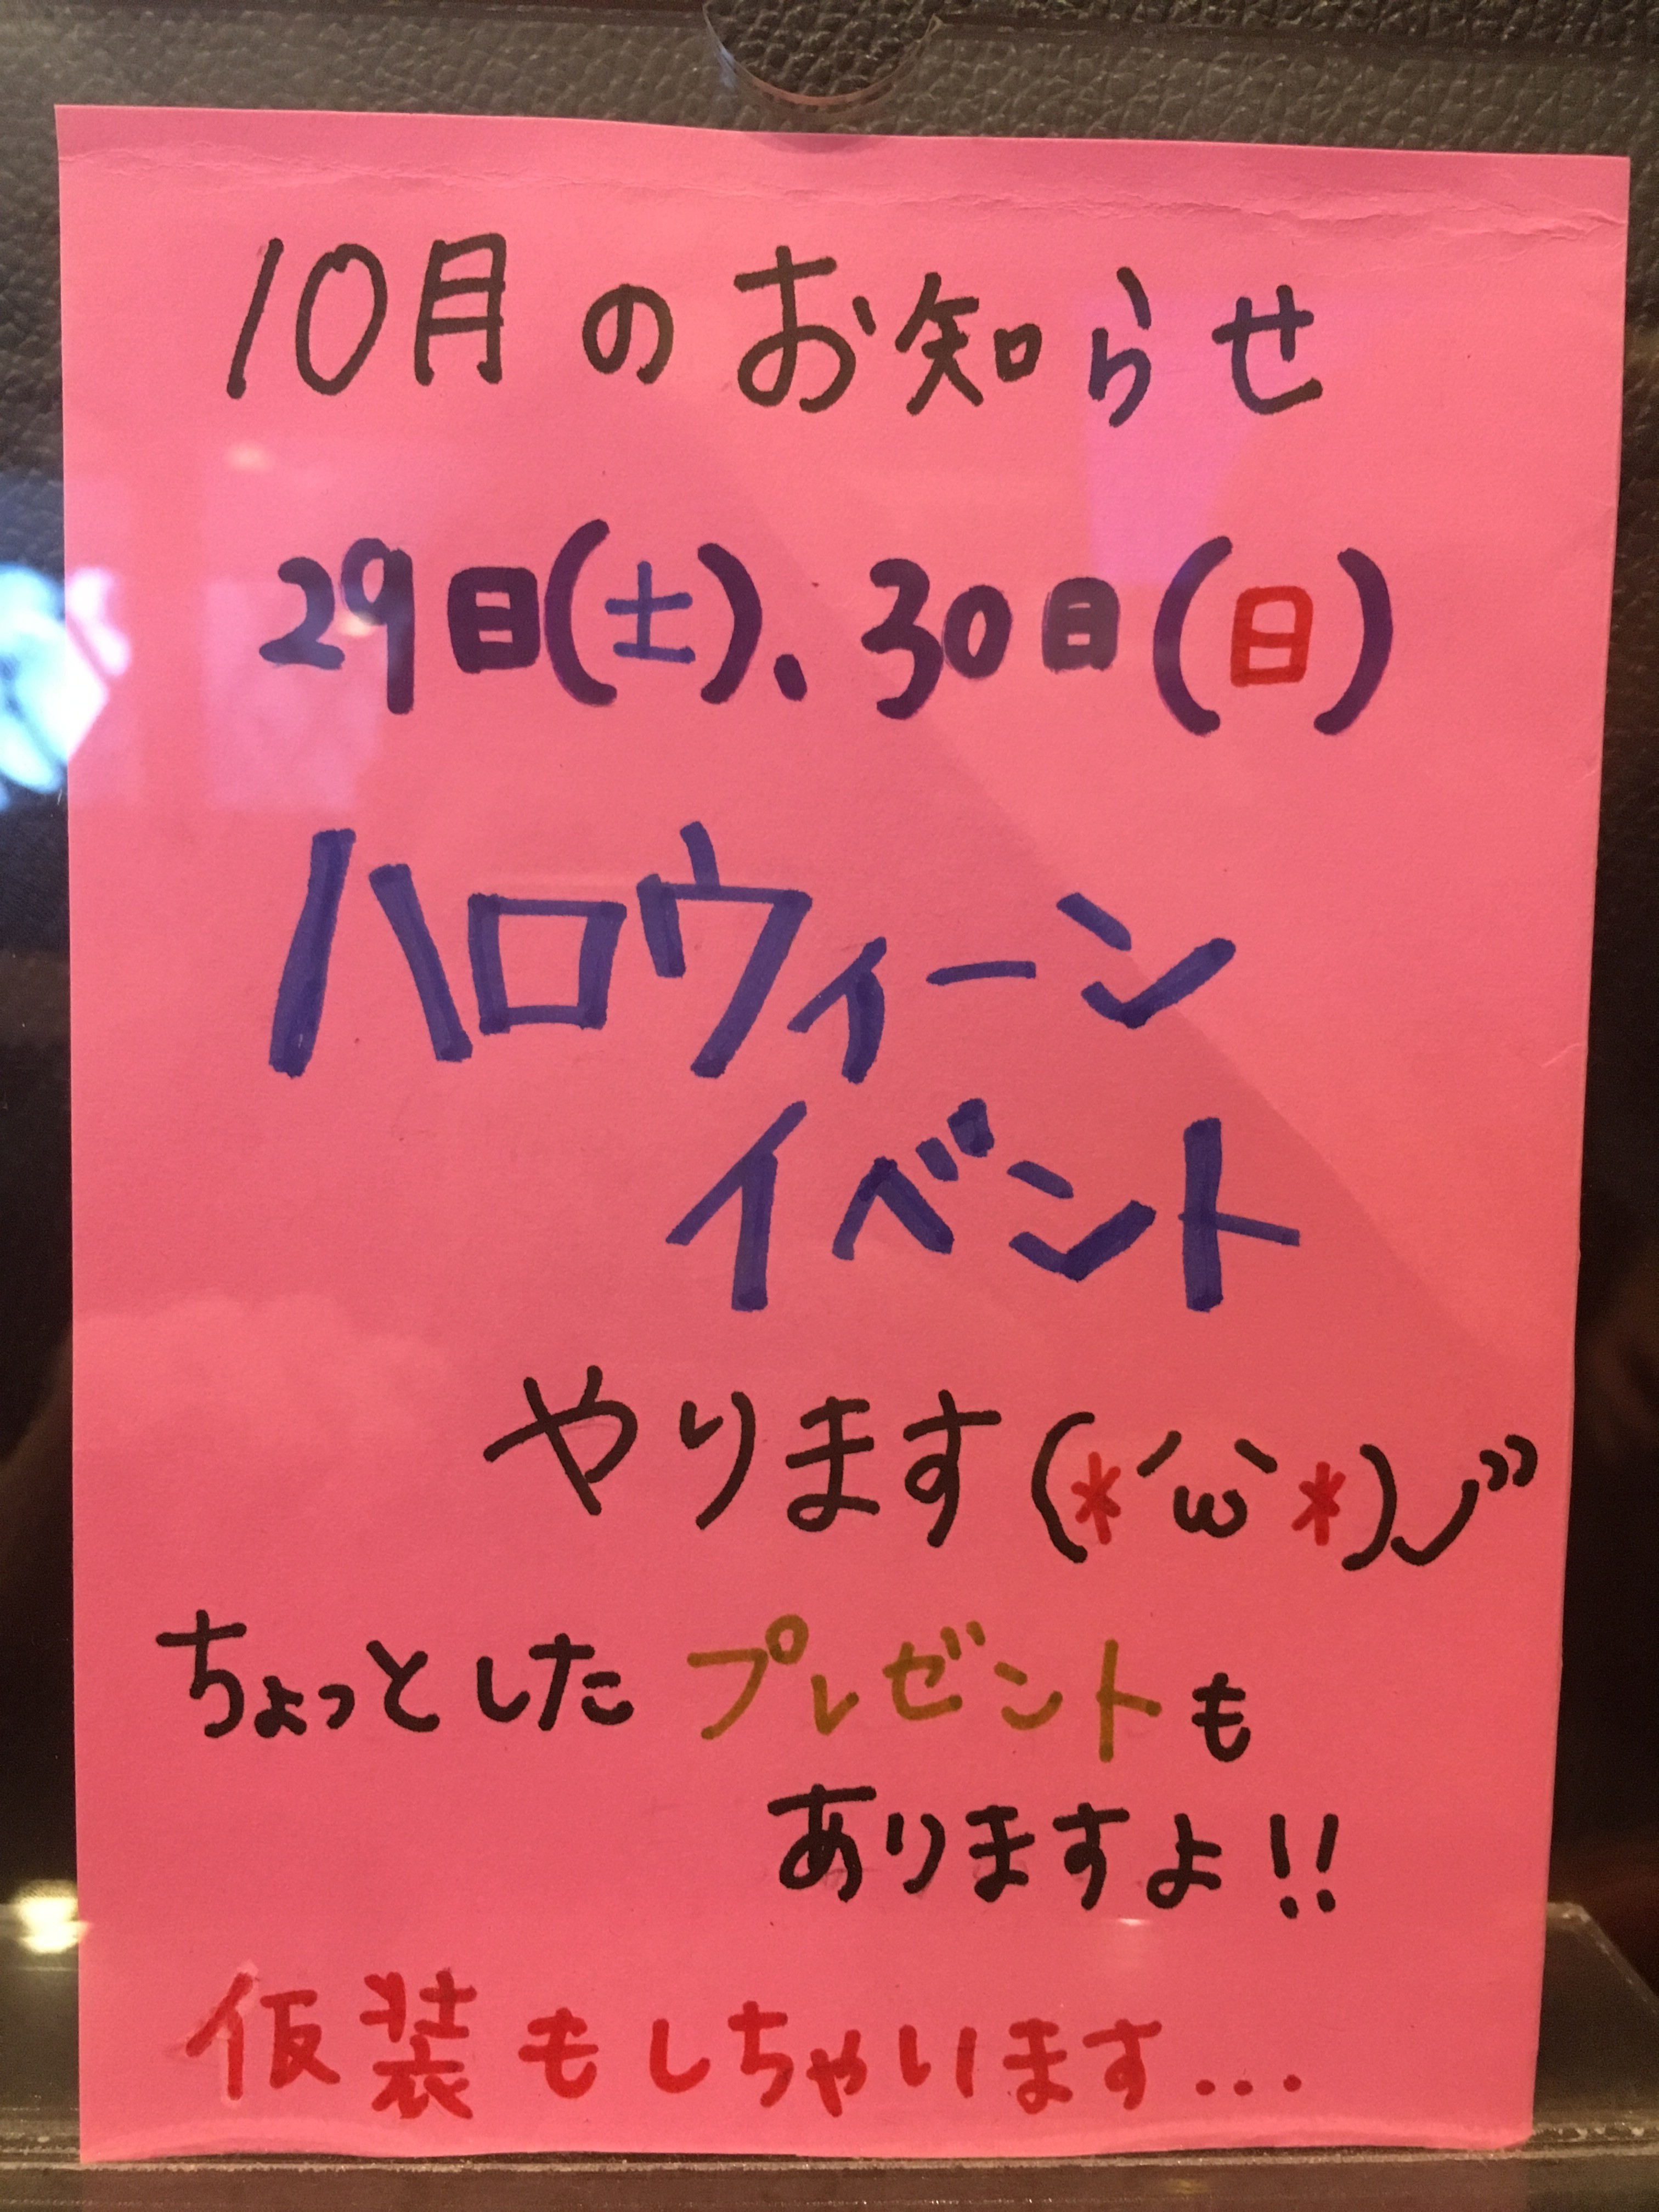 10月のお知らせ
29日(土)、30日(日)
ハロウィーン
イベント
やります(*´ω`*)ノ”
ちょっとしたプレゼントも
ありますよ!!
仮装もしちゃいます...